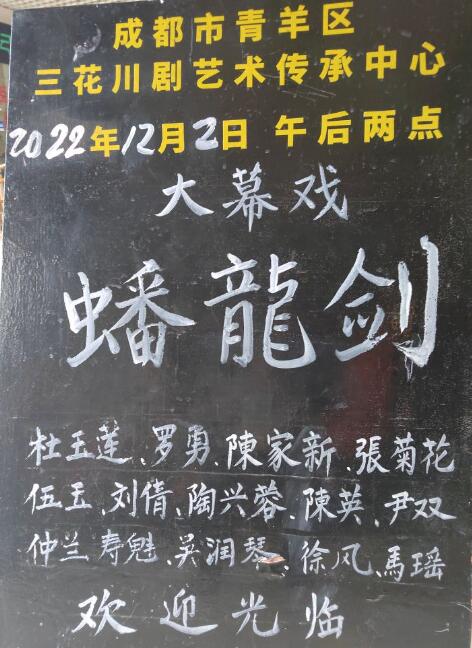 成都市青羊区
三花川剧艺术传承中心
2022年12月2日 午后两点
大幕戏
蟠龍剑
杜玉莲、罗勇、陳家新、張菊花
伍玉、刘倩、陶兴蓉、陳英、尹双
仲兰 寿魁、吴润琴、徐风、馬瑶
欢迎光临